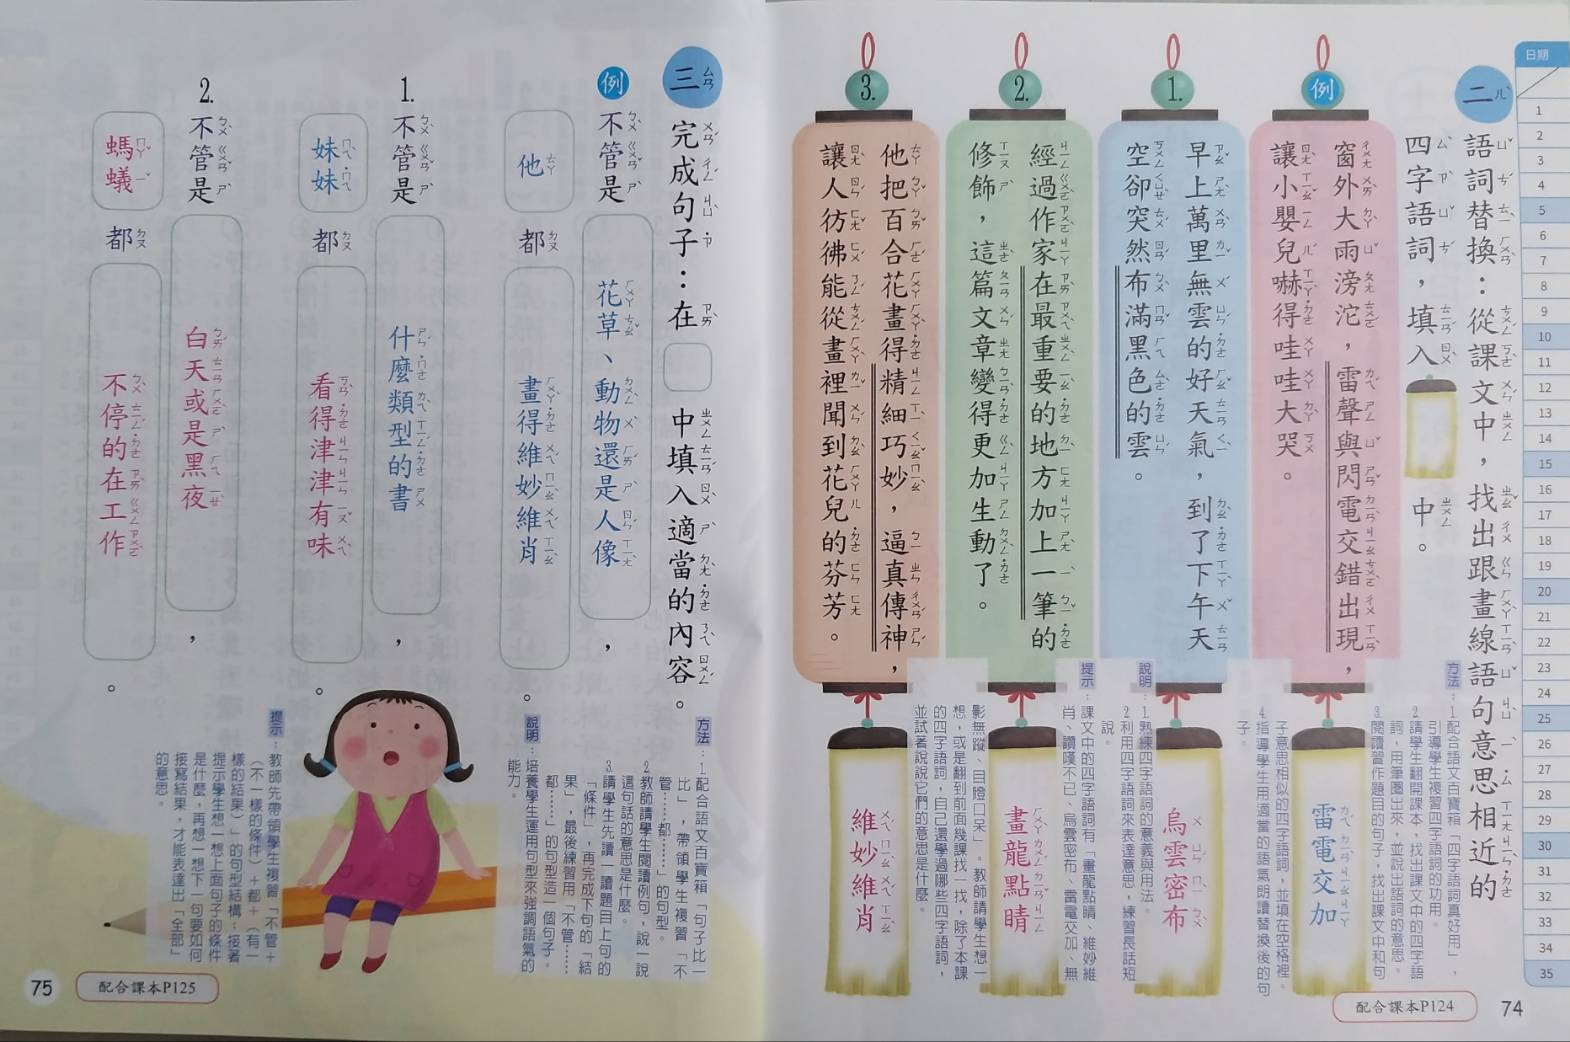 日期
1
2
3
4
5
6
7
8
9
10
11
12
13
14
15
16
17
18
19
20
21
22
23
24
25
26
27
28
29
30
31
32
33
34
35
二
語詞替換：從課文中，找出跟畫線語句意思相近的
四字語詞，填入中。
例
窗外大雨滂沱，雷聲與閃電交錯出現，
讓小嬰兒嚇得哇哇大哭。
雷電交加
1.
早上萬里無雲的好天氣，到了下午天
空卻突然布滿黑色的雲。
烏雲密布
2.
經過作家在最重要的地方加上一筆的
修飾，這篇文章變得更加生動了。
畫龍點睛
3.
他把百合花畫得精細巧妙，逼真傳神，
讓人彷彿能從畫裡聞到花兒的芬芳。
維妙維肖
方法：1.配合語文百寶箱「四字語詞真好用」，
引導學生複習四字語詞的功用。
2.請學生翻開課本，找出課文中的四字語
詞，用筆圈出來，並說出語詞的意思。
3.閱讀習作題目的句子，找出課文中和句
子意思相似的四字語詞，並填在空格裡。
4.指導學生用適當的語氣朗讀替換後的句
子。
說明：1.熟練四字語詞的意義與用法。
2.利用四字語詞來表達意思，練習長話短
說。
提示：課文中的四字語詞有「畫龍點睛、維妙維
肖、讚嘆不已、烏雲密布、雷電交加、無
影無蹤、目瞪口呆」。教師請學生想一
想，或是翻到前面幾課找一找，除了本課
的四字語詞，自己還學過哪些四字語詞，
並試著說說它們的意思是什麼。
配合課本P124
74
三
完成句子：在 中填入適當的內容。
例
不管是花草、動物還是人像，
他都畫得維妙維肖。
1.
不管是什麼類型的書，
妹妹都看得津津有味。
2.
不管是白天或是黑夜，
螞蟻都不停的在工作。
方法：1.配合語文百寶箱「句子比一
比」，帶領學生複習「不
管……都……」的句型。
2.教師請學生閱讀例句，說一說
這句話的意思是什麼。
3.請學生先讀一讀題目上句的
「條件」，再完成下句的「結
果」，最後練習用「不管……
都……」的句型造一個句子。
說明：培養學生運用句型來強調語氣的
能力。
提示：教師先帶領學生複習「不管＋
（不一樣的條件）＋都＋（有一
樣的結果）」的句型結構；接著
提示學生想一想上面句子的條件
是什麼，再想一想下一句要如何
接寫結果，才能表達出「全部」
的意思。
配合課本P125
75